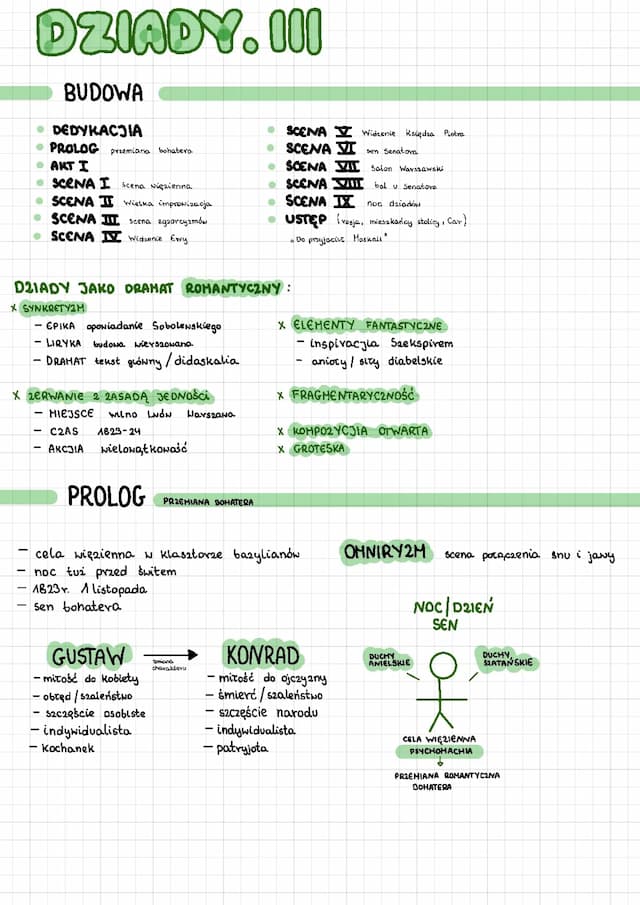 DZIADY. III
BUDOWA
DEDYKACJIA
PROLOG przemiana bohatera
AKT I
SCENA I scena więzienna
SCENA II Wielka improwizacja
SCENA III scena egzorcyzmów
SCENA IV Widzenie Ewy
SCENA V Widzenie Księdza Piotra
SCENA VI sen Senatora
SCENA VII Salon Warszawski
SCENA VIII bal u Senatora
SCENA IX noc dziadów
USTĘP (rosja, mieszkańcy stolicy, Car)
„Do przyjaciół Moskali"
DZIADY JAKO DRAMAT ROMANTYCZNY:
x SYNKRETYZM
- EPIKA opowiadanie Sobolewskiego
- LIRYKA budowa wierszowana
- DRAMAT tekst główny / didaskalia
x ZERWANIE Z ZASADĄ JEDNOŚCI
- MIEJSCE wilno lwów Warszawa
- CZAS 1823-24
- AKCJIA wielowątkowość
x ELEMENTY FANTASTYCZNE
- inspiracjia Szekspirem
- anioły / siły diabelskie
x FRAGMENTARYCZNOŚĆ
x KOMPOZYCJIA OTWARTA
x GROTESKA
PROLOG PRZEMIANA BOHATERA
- cela więzienna w klasztorze bazylianów
- noc tuż przed świtem
- 1823r. 1 listopada
- sen bohatera
OMNIRYZM scena połączenia snu i jawy
GUSTAW
zmiana charakteru
KONRAD
- miłość do kobiety
- obłęd / szaleństwo
- szczęście osobiste
- indywidualista
- kochanek
- miłość do ojczyzny
- śmierć / szaleństwo
- szczęście narodu
- indywidualista
- patryjota
NOC/DZIEŃ
SEN
DUCHY ANIELSKIE
DUCHY SZATAŃSKIE
CELA WIĘZIENNA
PSYCHOMACHIA
PRZEMIANA ROMANTYCZNA
BOHATERA